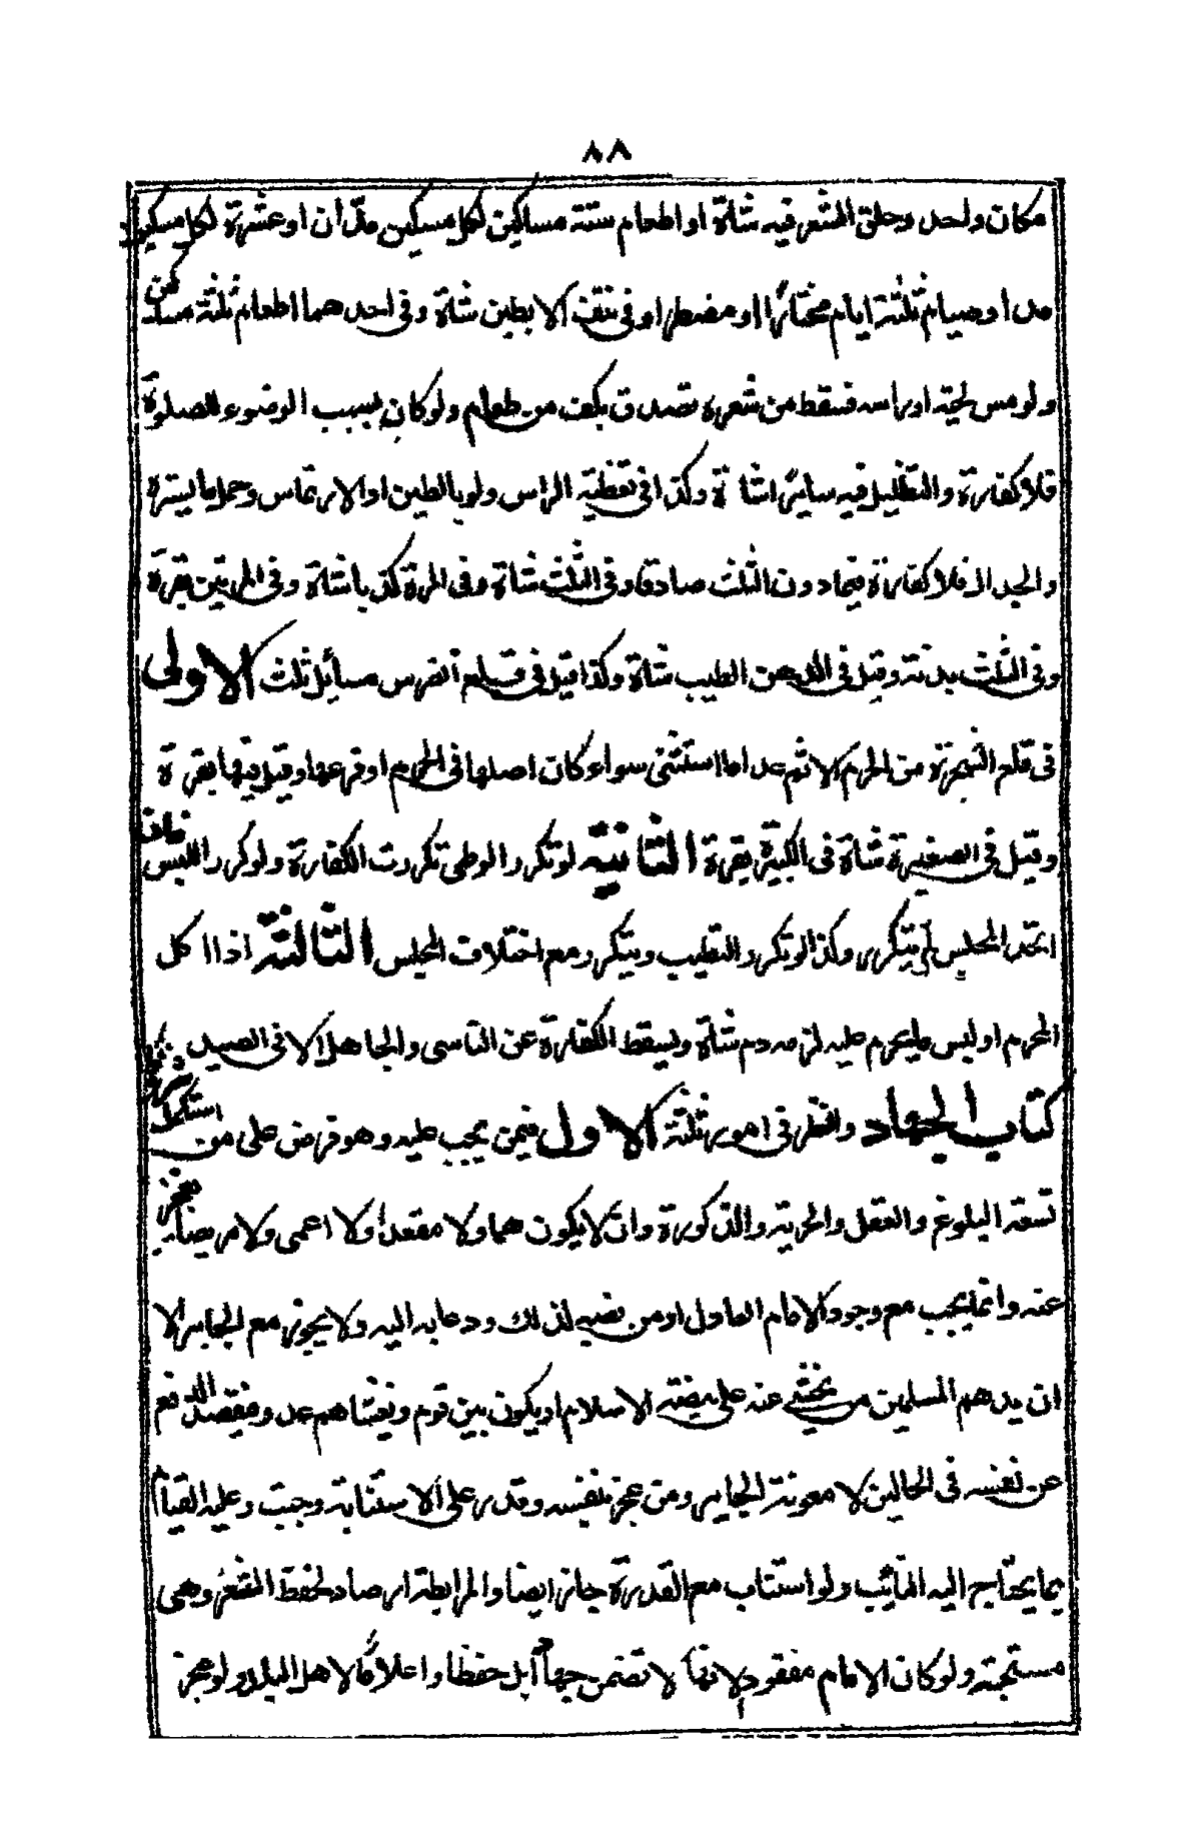 ٨٨
مكان واحد وحلق الشعر فيه شاة او اطعام ستة مساكين لكل مسكين مدّان او عشرة لكل مسكين
مد او صيام ثلثة ايام مختارًا او مضطرا وفى نتف الابطين شاة وفى احدهما اطعام ثلثة مساكين
ولو مس لحيته او راسه فسقط من شعره تصدق بكف من طعام ولو كان بسبب الوضوء للصلوة
فلا كفارة والتظليل فيه سايرًا شاة وكذا فى تغطية الراس ولو بالطين او الارتماس وحمل ما يستره
والجدال فلا كفارة فيما دون الثلث صادقا وفى الثلث شاة وفى المرة كذبا شاة وفى المرتين بقرة
وفى الثلث بدنة وقيل فى الدهن الطيب شاة وكذا قيل فى قلع الضرس مسائل ثلث الاولى
فى قلع الشجرة من الحرم الاثم عدا ما استثنى سواء كان اصلها فى الحرم او فرعها وقيل فيها بقرة
وقيل فى الصغيرة شاة فى الكبيرة بقرة الثانية لو تكرر الوطى تكررت الكفارة ولو كرر اللبس فان
اتحد المجلس لم يتكرر وكذا لو تكرر التطيب ويتكرر مع اختلاف المجلس الثالثة اذا اكل
المحرم او لبس ما يحرم عليه لزمه دم شاة ويسقط الكفارة عن الناسى والجاهل الا فى الصيد
كتاب الجهاد والنظر فى امور ثلثة الاول فيمن يجب عليه وهو فرض على من استكمل شروط
تسعة البلوغ والعقل والحرية والذكورة وان لا يكون هما ولا مقعدا ولا اعمى ولا مريضا يعجز
عنه وانما يجب مع وجود الامام العادل او من نصبه لذلك ودعابه اليه ولا يجوز مع الجاير الا
ان يدهم المسلمين من يخشى عنه على بيضة الاسلام او يكون بين قوم ويغشاهم عدو فيقصد الدفع
عن نفسه فى الحالين لا معونة الجاير ومن عجز بنفسه وقدر على الاستنابة وجبت وعليه القيام
بما يحتاج اليه النائب ولو استناب مع القدرة جاز ايضا والمرابطة ارصاد لحفظ الثغر وهى
مستحبة ولو كان الامام مفقودا لانها لا تضمن جهادا بل حفظا واعلاما لاهل البلد ولو عجز